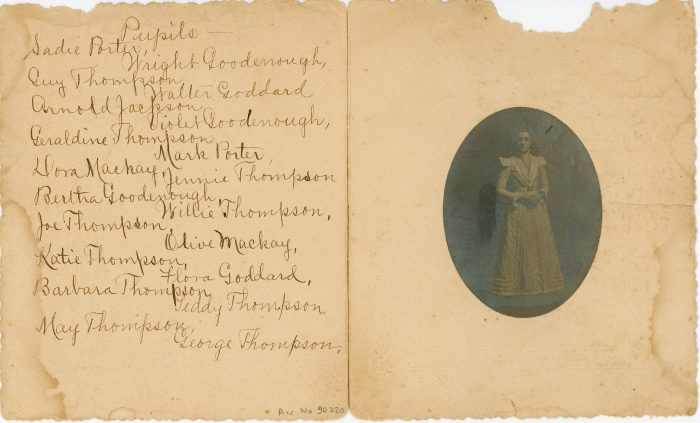 Pupils —
Sadie Porter,
Wright Goodenough,
Guy Thompson
Walter Goddard
Arnold Jackson
Violet Goodenough,
Geraldine Thompson
Mark Porter,
Dora Mackay,
Jennie Thompson
Bertha Goodenough,
Willie Thompson,
Joe Thompson,
Olive Mackay,
Katie Thompson,
Flora Goddard,
Barbara Thompson
Teddy Thompson
May Thompson,
George Thompson,
Acc. No. 90.020